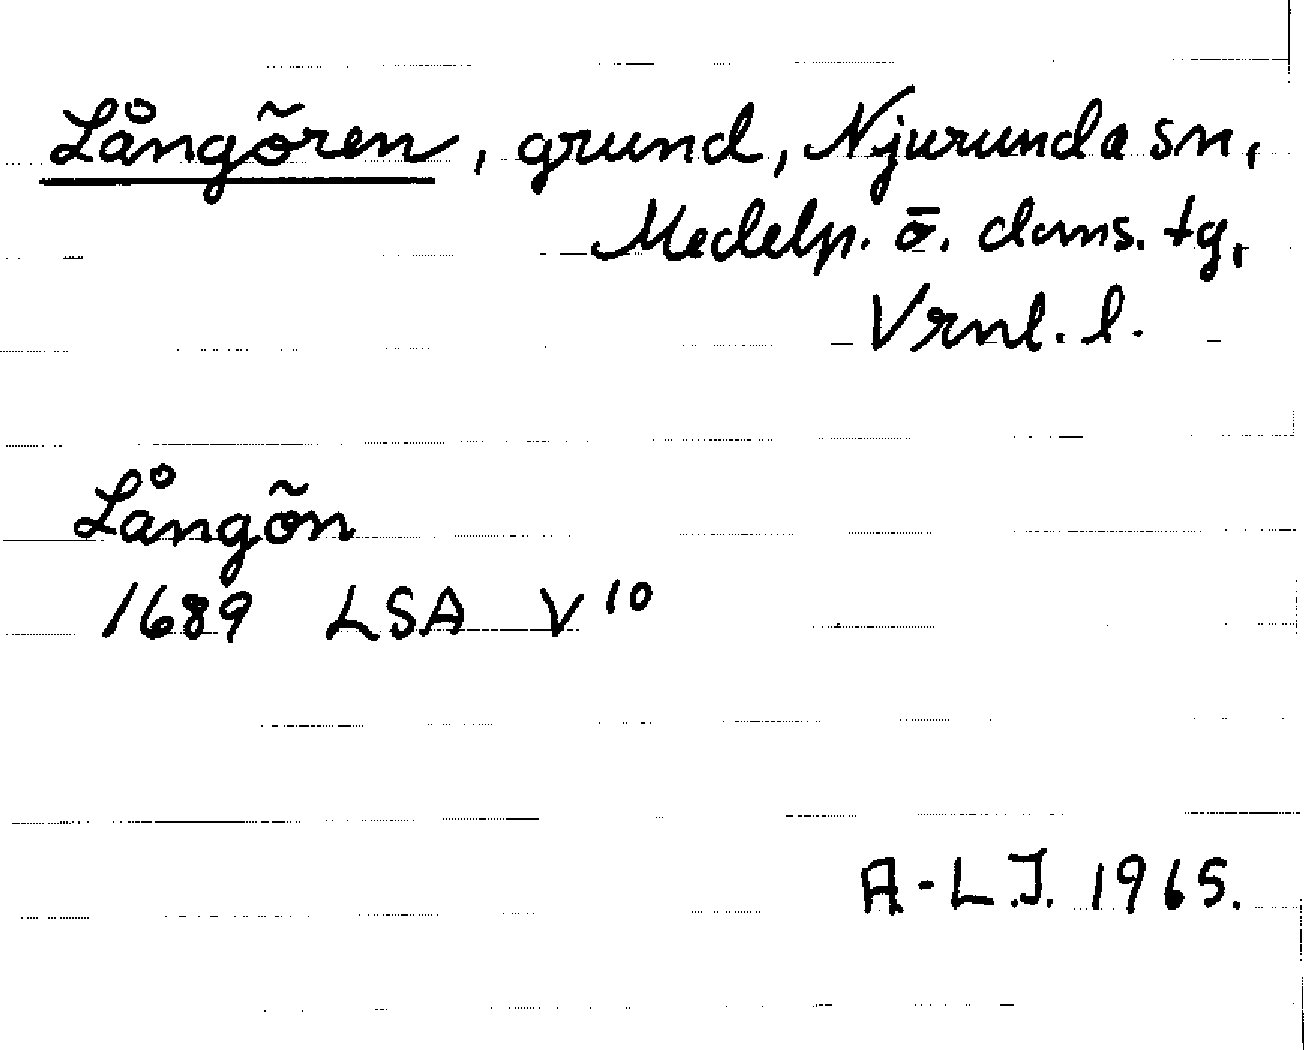 Långören, grund, Njurunda sn,
Medelp. ö. doms. tg,
Vrnl. l.
Långön
1689 LSA V 10
A-L.J. 1965.